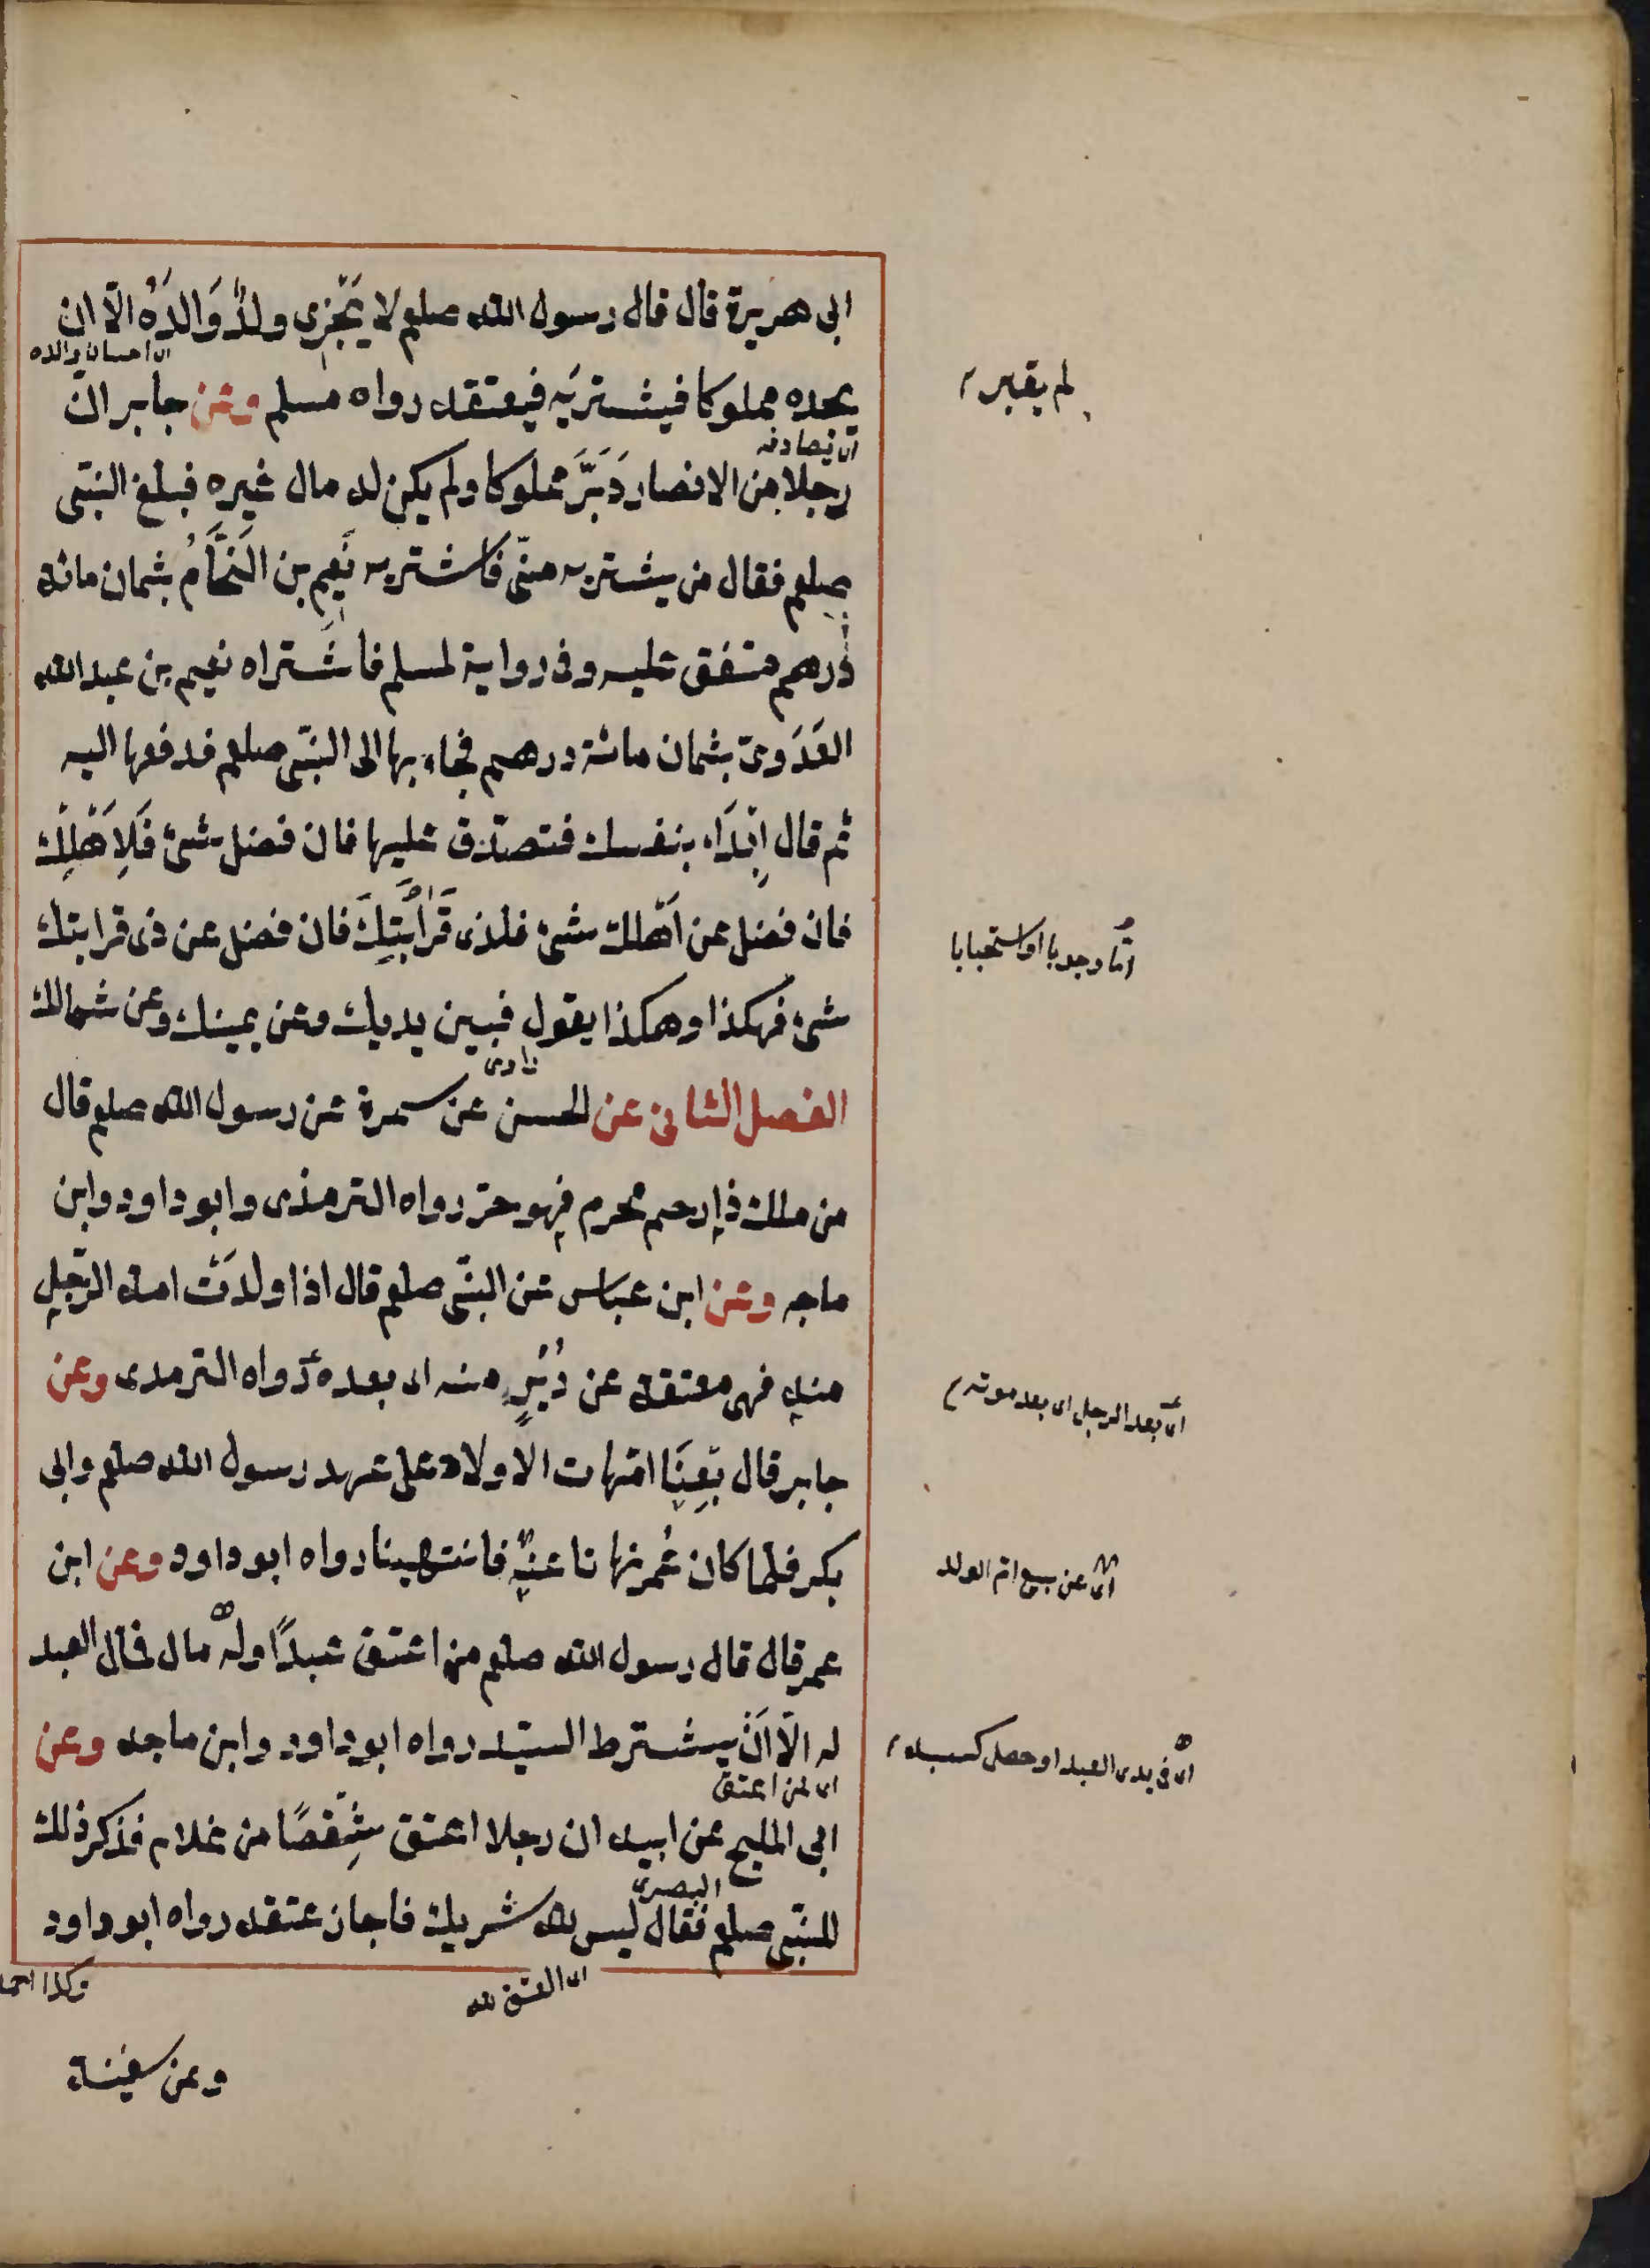 ابى هريرة قال قال رسول الله صلعم لا يَجْزِى ولدٌ وَالدَهُ الّا ان
اى احسان والده
يجده مملوكا فيشتريَه فيعتقه رواه مسلم وعن جابر انّ
اى يصادفه
رجلا من الانصار دَبَّرَ مملوكا ولم يكن له مال غيره فبلغ النبّى
صلعم فقال من يشتريه منّى فاشتريه نُعَيم بن النَحَّامُ بثمان مائة
درهم متفق عليه وفى رواية لمسلم فاشتراه نعيم بن عبد الله
العَدَوىّ بثمان مائة درهم فجاء بها الى النبّى صلعم فدفعها اليه
ثم قال اِبْدَاء بنفسك فتصدّق عليها فان فضل شئ فَلِاَهْلِكَ
فان فضل عن اَهلك شئ فلذى قَرَابَتِكَ فان فضل عن ذى قرابتك
شئ فهكذا وهكذا يقول فبين يديك وعن يمينك وعن شمالك
الفصل الثانى عن الحسن عن سمرة عن رسول الله صلعم قال
من ملك ذا رحم محرم فهو حرّ رواه الترمذى وابو داود وابن
ماجه وعن ابن عباس عن النبّى صلعم قال اذا ولدَت امة الرّجلِ
منه فهى معتقة عن دُبُرٍ منه او بعده رواه الترمدى وعن
جابر قال بِعنَا امّهات الاولاد على عهد رسول الله صلعم وابى
بكر فلما كان عُمر نها نا عنه فانتهينا رواه ابو داود وعن ابن
عمر قال قال رسول الله صلعم من اعتق عبدًا وله مال فمال العبد
له الّا اَنْ يشترط السيّد رواه ابو داود وابن ماجه وعن
اى لمن اعتق
ابى المليح عن ابيه ان رجلا اعتق شِقْصًا من غلام فذكر ذلك
البصرى
للنبّى صلعم فقال ليس لله شريك فاجاز عتقه رواه ابو داود
اى العتق لله
وعن سفينة
امّا وجوبا او استحبابا
اى بعد الرجل اى بعد موته
اى عن بيع امّ الولد
اى فى يدى العبد او حصل كسبه